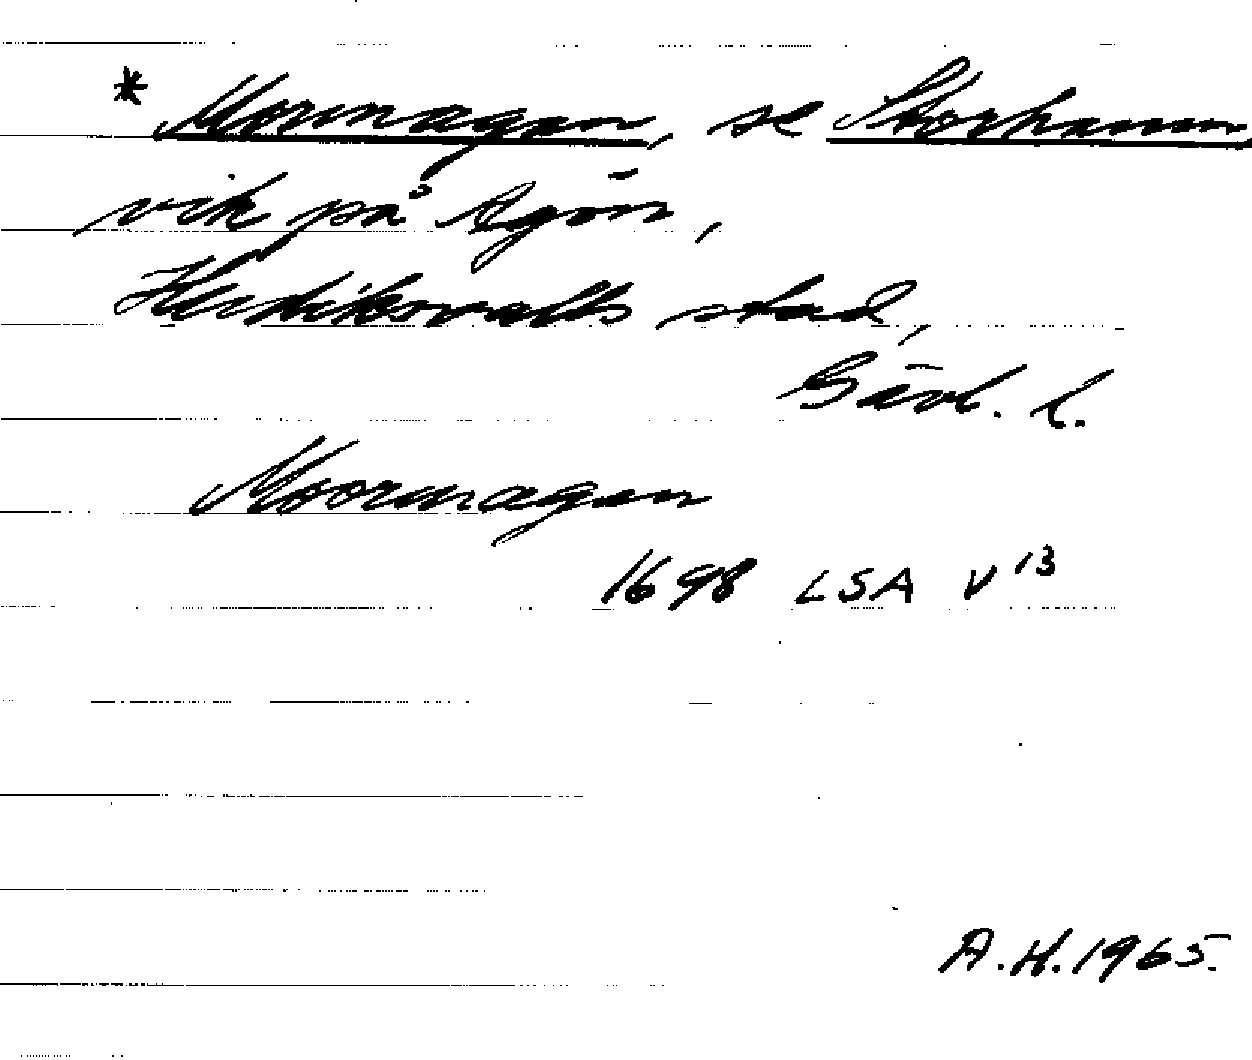 * Mormagen, se Storhamn,
vik på Agön,
Hudiksvalls stad,
Gävl. l.
Moormagen
1698 LSA V 13
A.H. 1965.